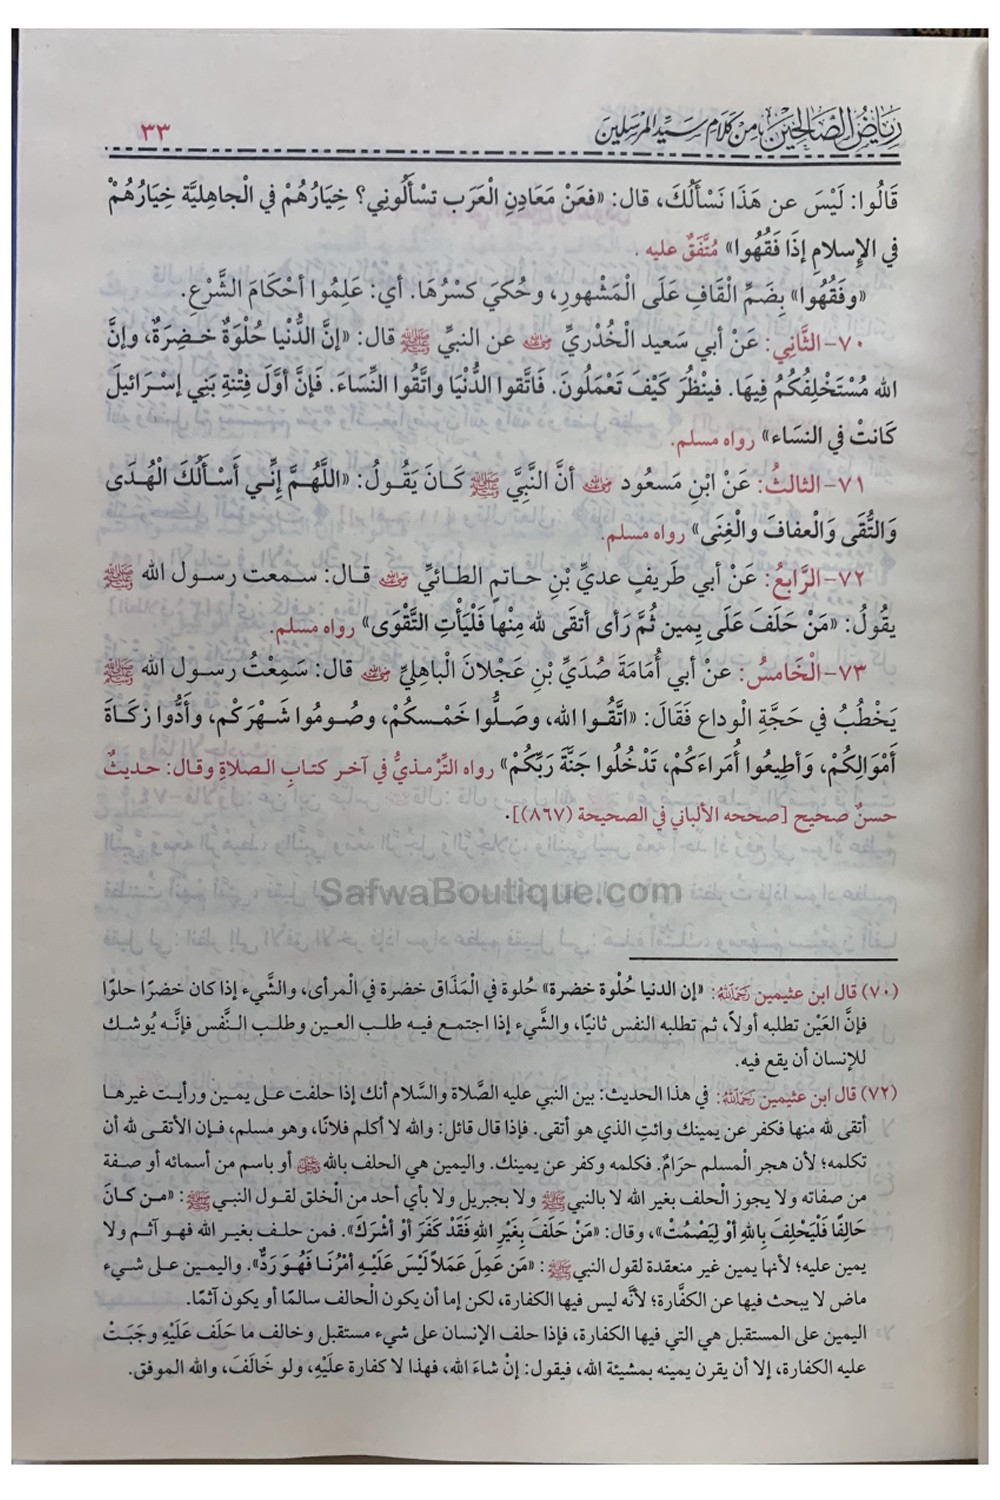 رياض الصالحين من كلام سيد المرسلين
٣٣
قَالُوا: لَيْسَ عن هَذَا نَسْأَلُكَ، قال: «فعَنْ مَعَادِنِ الْعَرَب تسْأَلُونِي؟ خِيَارُهُمْ في الْجاهِليَّة خِيَارُهُمْ
في الإِسلامِ إذَا فَقُهُوا» مُتَّفَقٌ عليه .
«وفَقُهُوا» بِضَمِّ الْقَافِ عَلَى الْمَشْهورِ، وحُكيَ كسْرُهَا. أي: عَلِمُوا أحْكَامَ الشَّرْعِ.
٧٠-الثَّانِي: عَنْ أبي سَعيد الْخُدْريِّ ﵁ عن النبيِّ ﷺ قال: «إنَّ الدُّنْيا حُلْوَةٌ خضِرَةٌ، وإنَّ
الله مُسْتَخْلِفُكُمْ فِيهَا. فينْظُرَ كَيْفَ تَعْمَلُونَ. فَاتَّقوا الدُّنْيَا واتَّقُوا النِّسَاءَ. فَإنَّ أوَّلَ فِتْنةِ بَنِي إسْرَائيلَ
كَانتْ في النسَاء» رواه مسلم.
٧١-الثالثُ: عَنْ ابْنِ مَسعُود ﵁ أنَّ النَّبِيَّ ﷺ كَـانَ يَقُـولُ: «اللَّهُـمَّ إنِّـي أَسْـأَلُكَ الْهُـدَى
وَالتُّقَى وَالْعفافَ والْغِنَى» رواه مسلم.
٧٢-الرَّابعُ: عَنْ أبي طَريفٍ عديِّ بْنِ حـاتمٍ الطـائيِّ ﵁ قـال: سـمعت رسـول الله ﷺ
يقُولُ: «مَنْ حَلَفَ عَلَى يمِين ثُمَّ رَأى أتقَى لله مِنْها فَلْيَأْتِ التَّقْوَى» رواه مسلم.
٧٣-الْخَامسُ: عنْ أبي أُمَامَةَ صُدَيِّ بْنِ عَجْلانَ الْباهِليِّ ﵁ قال: سَمِعْتُ رسـول الله ﷺ
يَخْطُبُ في حَجَّةِ الْوداع فَقَالَ: «اتَّقُـوا الله، وصَلُّوا خَمْـسكُمْ، وصُـومُوا شَـهْرَكُم، وأَدُّوا زكَـاةَ
أَمْوَالِكُمْ، وَأطِيعُوا أُمَرَاءَكُمْ، تَدْخُلُوا جَنَّةَ رَبِّكُمْ» رواه التِّرْمذيُّ في آخـر كتـابِ الـصلاةِ وقـال: حـديثٌ
حسنٌ صحيح [صححه الألباني في الصحيحة (٨٦٧)].
SafwaBoutique.com
(٧٠) قال ابن عثيمين ﵀: «إن الدنيا حُلْوة خضرة» حُلوة في الْمَذَاق خضرة في الْمرأى، والشَّيء إذا كان خضرًا حلوًا
فإنَّ العَيْن تطلبه أولاً، ثم تطلبه النفس ثانيًا، والشَّيء إذا اجتمـع فيـه طلـب العـين وطلـب الـنَّفس فإنَّـه يُوشـك
للإنسان أن يقع فيه.
(٧٢) قال ابن عثيمين ﵀: في هذا الحديث: بين النبي عليه الصَّلاة والسَّلام أنك إذا حلفت عـلى يمـين ورأيـت غيرهـا
أتقى لله منها فكفر عن يمينك وائتِ الذي هو أتقى. فإذا قال قائل: والله لا أكلم فلانًا، وهو مسلم، فـإن الأتقـى لله أن
تكلمه؛ لأن هجر الْمسلم حرَامٌ. فكلمه وكفر عن يمينك. واليمين هي الحلف بالله ﷻ أو باسم من أسمائه أو صـفة
من صفاته ولا يجوز الْحلف بغير الله لا بالنبي ﷺ ولا بجبريل ولا بأي أحد من الْخلق لقول النبـي ﷺ: «مـن كـانَ
حَالِفًا فَلْيَحْلِفَ بِاللهِ أوْ لِيَصْمُتْ»، وقال: «مَنْ حَلَفَ بِغَيْرِ اللهِ فَقَدْ كَفَرَ أَوْ أشْرَكَ». فمن حلـف بغـير الله فهـو آثـم ولا
يمين عليه؛ لأنها يمين غير منعقدة لقول النبي ﷺ: «مَن عَمِلَ عَمَلاً لَيْسَ عَلَيْـهِ أمْرُنَـا فَهُـوَ رَدٌّ». واليمـين عـلى شـيء
ماض لا يبحث فيها عن الكفَّارة؛ لأنَّه ليس فيها الكفارة، لكن إما أن يكون الْحالف سالمًا أو يكون آثمًا.
اليمين على المستقبل هي التي فيها الكفارة، فإذا حلف الإنسان على شيء مستقبل وخالف ما حَلَف عَلَيْهِ وجَبَـتْ
عليه الكفارة، إلا أن يقرن يمينه بمشيئة الله، فيقول: إنْ شاءَ الله، فهذا لا كفارة علَيْهِ، ولو خَالَفَ، والله الموفق.